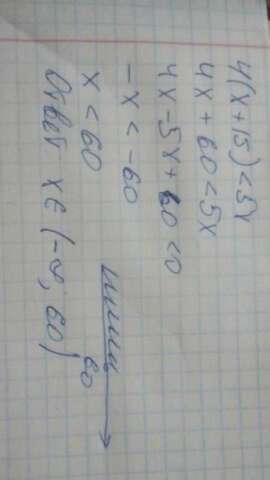 4(x+15)<5x
4x+60<5x
4x-5x+60<0
-x<-60
x<60
60
Ответ x∈(-∞; 60)